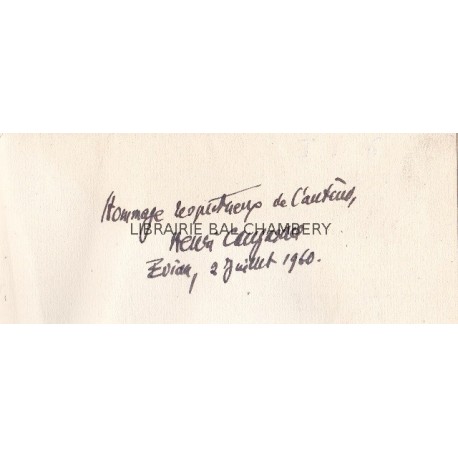 Hommage respectueux de l'auteur,
LIBRAIRIE BAL CHAMBERY
Henri
Evian, 2 Juillet 1960.